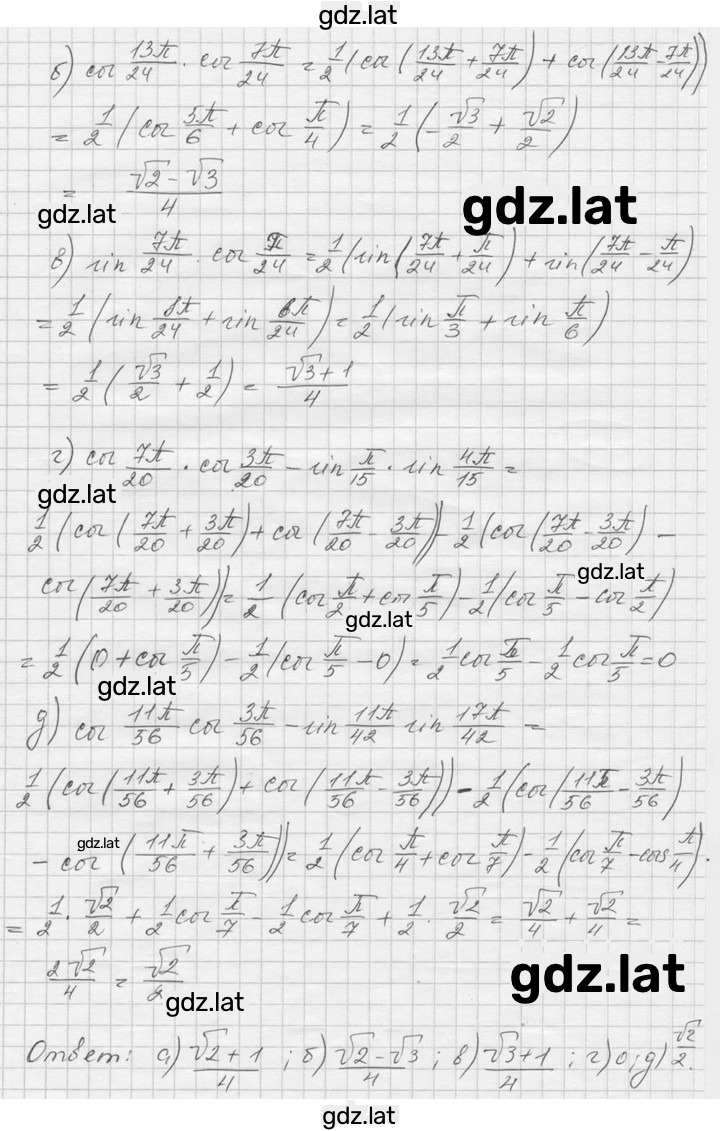 gdz.lat
б) cos 13π/24 · cos 7π/24 = 1/2 (cos (13π/24 + 7π/24) + cos (13π/24 - 7π/24))
= 1/2 (cos 5π/6 + cos π/4) = 1/2 (-√3/2 + √2/2)
= √2-√3/4
gdz.lat gdz.lat
в) sin 7π/24 · cos π/24 = 1/2 (sin (7π/24 + π/24) + sin (7π/24 - π/24)
= 1/2 (sin 8π/24 + sin 6π/24) = 1/2 (sin π/3 + sin π/6)
= 1/2 (√3/2 + 1/2) = √3+1/4
г) cos 7π/20 · cos 3π/20 - sin π/15 · sin 4π/15 =
gdz.lat
1/2 (cos (7π/20 + 3π/20) + cos (7π/20 - 3π/20)) - 1/2 (cos (7π/20 - 3π/20) -
gdz.lat
cos (7π/20 + 3π/20)) = 1/2 (cos π/2 + cos π/5) - 1/2 (cos π/5 - cos π/2)
gdz.lat
= 1/2 (0 + cos π/5) - 1/2 (cos π/5 - 0) = 1/2 cos π/5 - 1/2 cos π/5 = 0
gdz.lat
д) cos 11π/56 cos 3π/56 - sin 11π/42 sin 17π/42 =
1/2 (cos (11π/56 + 3π/56) + cos (11π/56 - 3π/56)) - 1/2 (cos (11π/56 - 3π/56)
gdz.lat
- cos (11π/56 + 3π/56)) = 1/2 (cos π/4 + cos π/7) - 1/2 (cos π/7 - cos π/4).
= 1/2 · √2/2 + 1/2 cos π/7 - 1/2 cos π/7 + 1/2 · √2/2 = √2/4 + √2/4 =
2√2/4 = √2/2
gdz.lat gdz.lat
Ответ: а) √2+1/4 ; б) √2-√3/4 ; в) √3+1/4 ; г) 0; д) √2/2.
gdz.lat